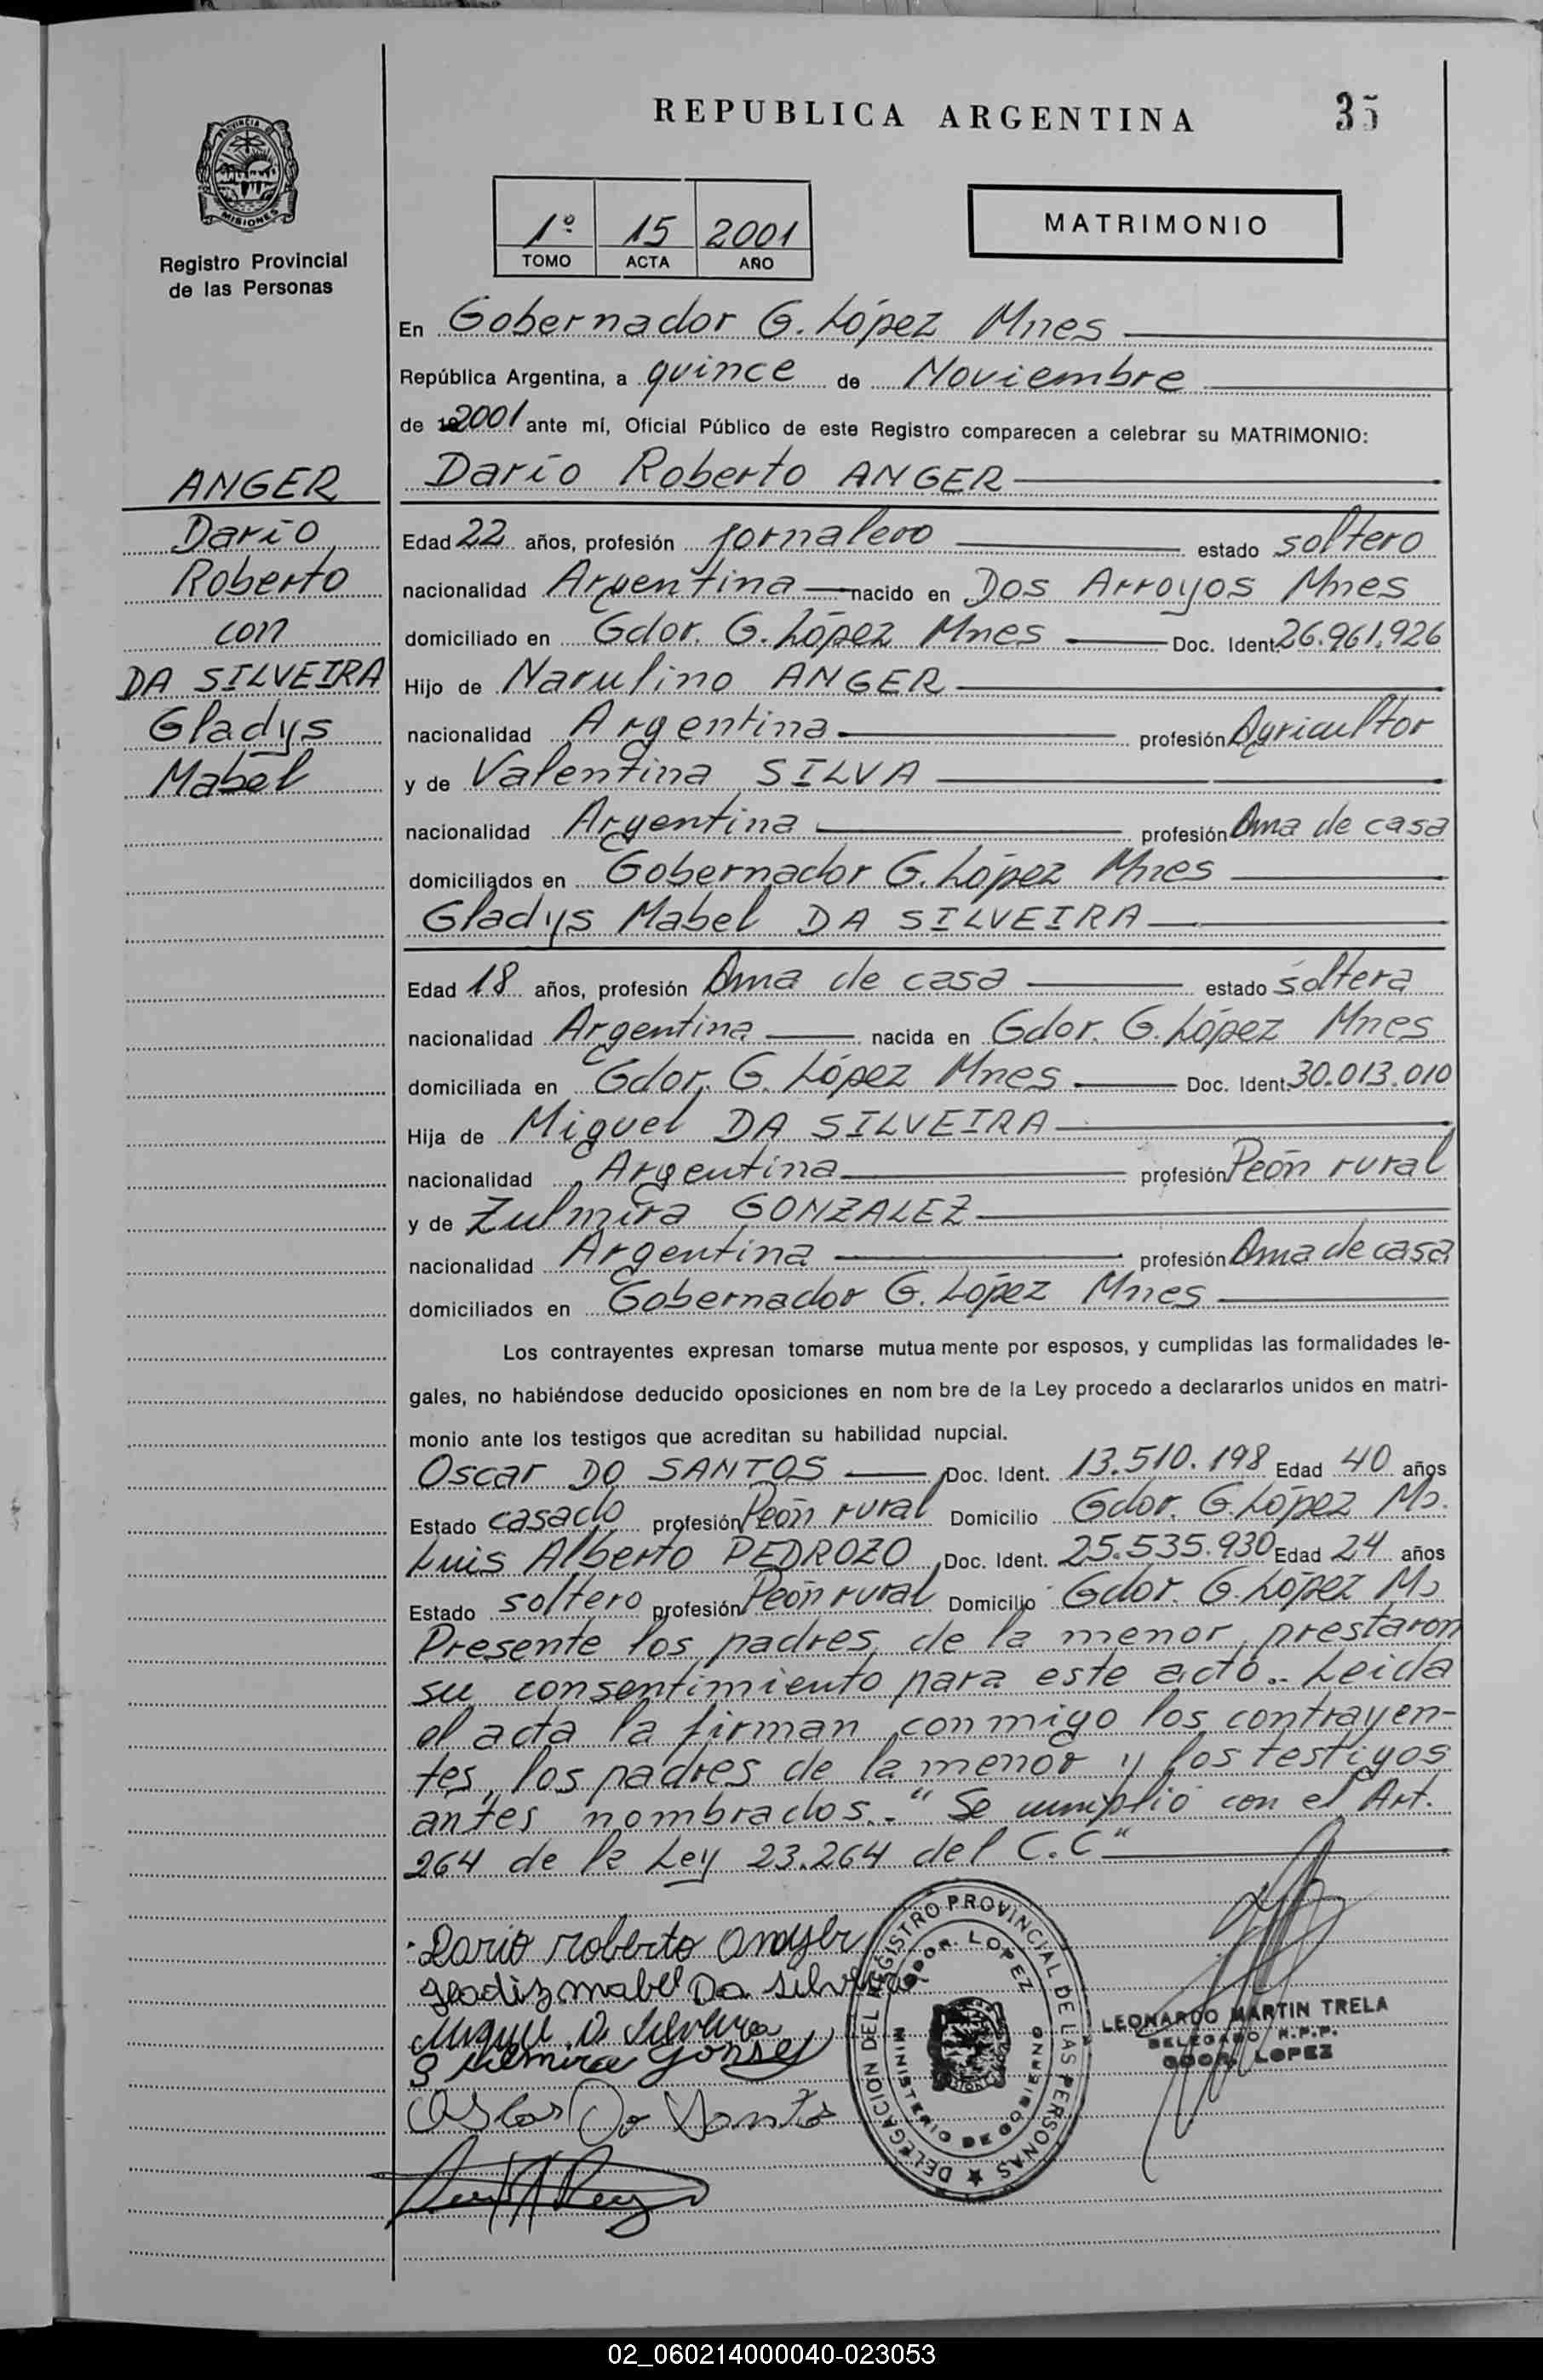 REPUBLICA ARGENTINA
35
PROVINCIA DE
MISIONES
Registro Provincial
de las Personas
1º 15 2001
TOMO ACTA AÑO
MATRIMONIO
En Gobernador G. López Mnes
República Argentina, a quince de Noviembre
de 2001 ante mí, Oficial Público de este Registro comparecen a celebrar su MATRIMONIO:
ANGER
Darío
Roberto
con
DA SILVEIRA
Gladys
Mabel
Darío Roberto ANGER
Edad 22 años, profesión Jornalero estado soltero
nacionalidad Argentina nacido en Dos Arroyos Mnes
domiciliado en Gdor. G. López Mnes Doc. Ident. 26.961.926
Hijo de Narulino ANGER
nacionalidad Argentina profesión Agricultor
y de Valentina SILVA
nacionalidad Argentina profesión Ama de casa
domiciliados en Gobernador G. López Mnes
Gladys Mabel DA SILVEIRA
Edad 18 años, profesión Ama de casa estado soltera
nacionalidad Argentina nacida en Gdor. G. López Mnes
domiciliada en Gdor. G. López Mnes Doc. Ident. 30.013.010
Hija de Miguel DA SILVEIRA
nacionalidad Argentina profesión Peón rural
y de Zulmira GONZALEZ
nacionalidad Argentina profesión Ama de casa
domiciliados en Gobernador G. López Mnes
Los contrayentes expresan tomarse mutua mente por esposos, y cumplidas las formalidades le-
gales, no habiéndose deducido oposiciones en nom bre de la Ley procedo a declararlos unidos en matri-
monio ante los testigos que acreditan su habilidad nupcial.
Oscar DO SANTOS Doc. Ident. 13.510.198 Edad 40 años
Estado casado profesión Peón rural Domicilio Gdor. G. López Ms.
Luis Alberto PEDROZO Doc. Ident. 25.535.930 Edad 24 años
Estado soltero profesión Peón rural Domicilio Gdor. G. López Ms
Presente los padres de la menor, prestaron
su consentimiento para este acto.- Leida
el acta la firman conmigo los contrayen-
tes, los padres de la menor y los testigos
antes nombrados.- "Se cumplió con el Art.
264 de la Ley 23.264 del C.C"
Dario roberto Angyer
gladiz mabel Da silveira
Miguel D. Silveira
Oscar Do Santos
DELEGACION DEL REGISTRO PROVINCIAL DE LAS PERSONAS
GDOR. LOPEZ
MINISTERIO DE GOBIERNO
LEONARDO MARTIN TRELA
DELEGADO R.P.P.
GDOR. LOPEZ
02_060214000040-023053